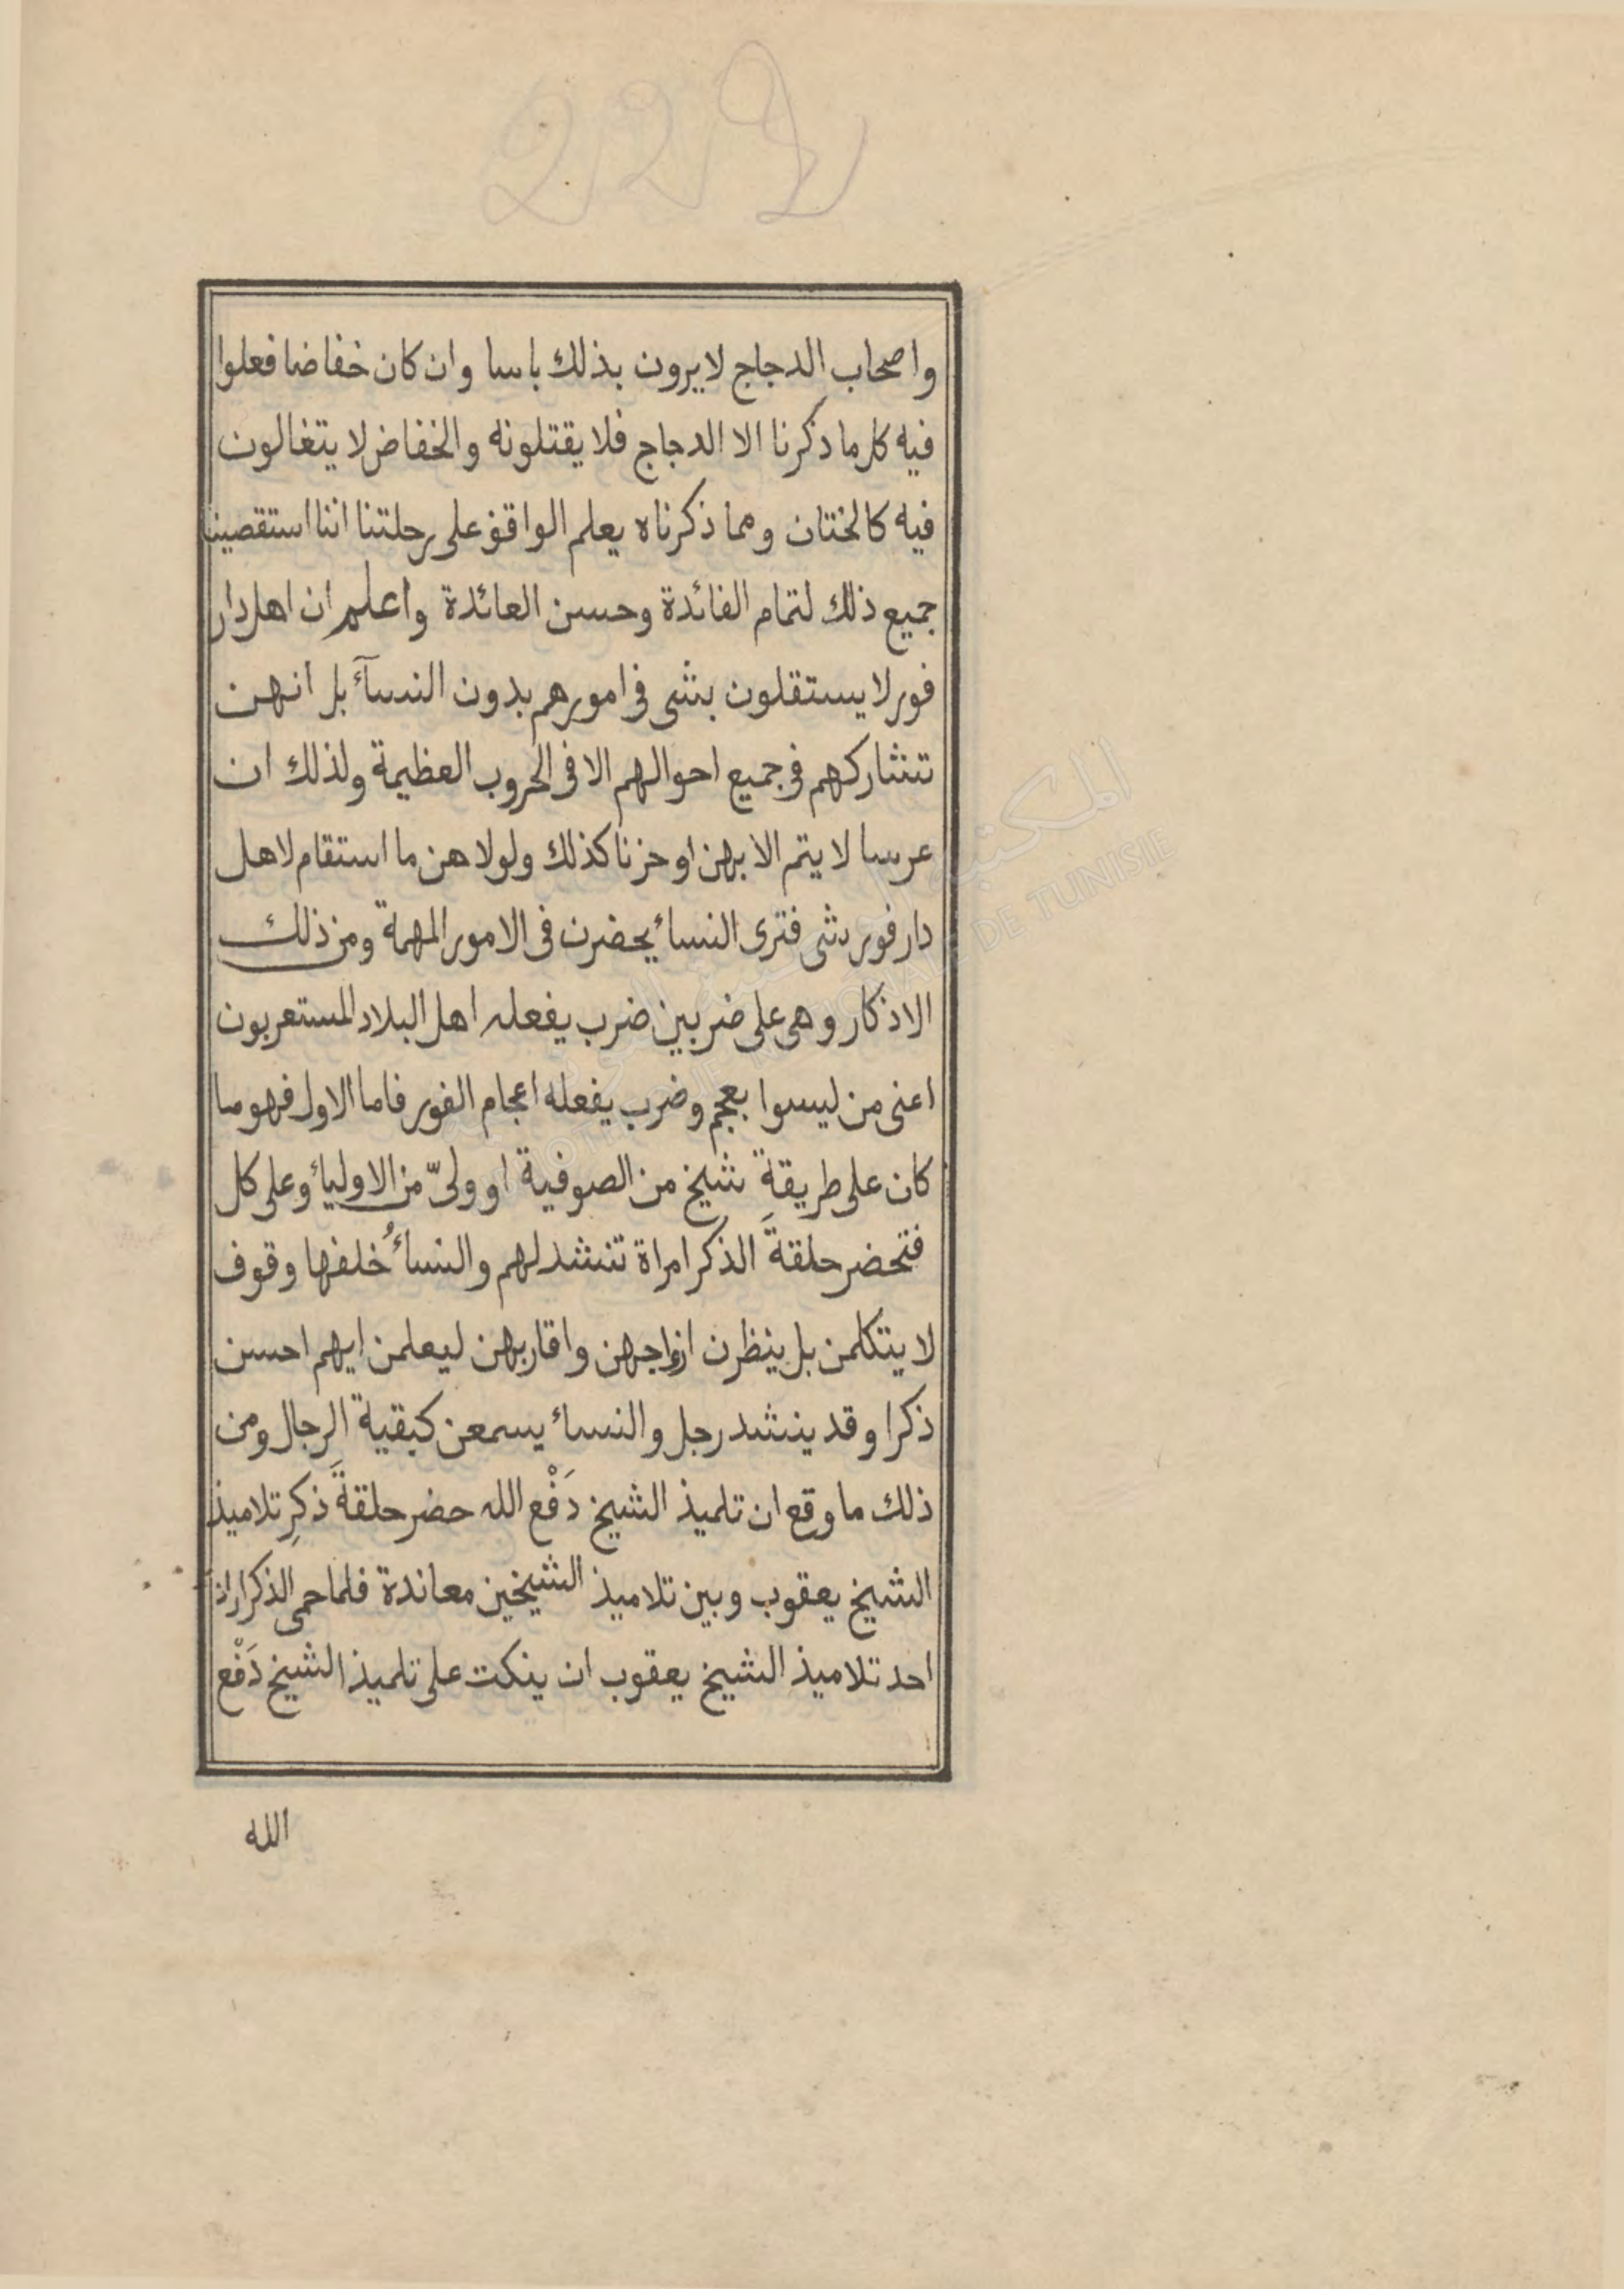 واصحاب الدجاج لا يرون بذلك باسا وان كان خفاضا فعلوا
فيه كل ما ذكرنا الا الدجاج فلا يقتلونه والخفاض لا يتغالون
فيه كالختان ومما ذكرناه يعلم الواقف على رحلتنا اننا استقصينا
جميع ذلك لتمام الفائدة وحسن العائدة واعلم ان اهل دار
فور لا يستقلون بشى فى امورهم بدون النسآء بل انهن
تشاركهم فى جميع احوالهم الا فى الحروب العظيمة ولذلك ان
عرسا لا يتم الا بهن او حزنا كذلك ولولا هن ما استقام لاهل
دار فور شى فترى النساء يحضرن فى الامور المهمة ومن ذلك
الاذكار وهى على ضربين ضرب يفعله اهل البلاد المستعربون
اعنى من ليسوا بعجم وضرب يفعله اعجام الفور فاما الاول فهو ما
كان على طريقة شيخ من الصوفية او ولىّ من الاولياء وعلى كل
فتحضر حلقةَ الذكر امراة تنشد لهم والنساءُ خلفها وقوف
لا يتكلمن بل ينظرن ازواجهن واقاربهن ليعلمن ايهم احسن
ذكرا وقد ينشد رجل والنساء يسمعن كبقية الرجال ومن
ذلك ما وقع ان تلميذ الشيخ دَفْع الله حضر حلقةَ ذكرِ تلاميذ
الشيخ يعقوب وبين تلاميذ الشيخين معاندة فلما حمى الذكر اراد
احد تلاميذ الشيخ يعقوب ان ينكت على تلميذ الشيخ دَفْع
الله
المكتبة
DE TUNISIE